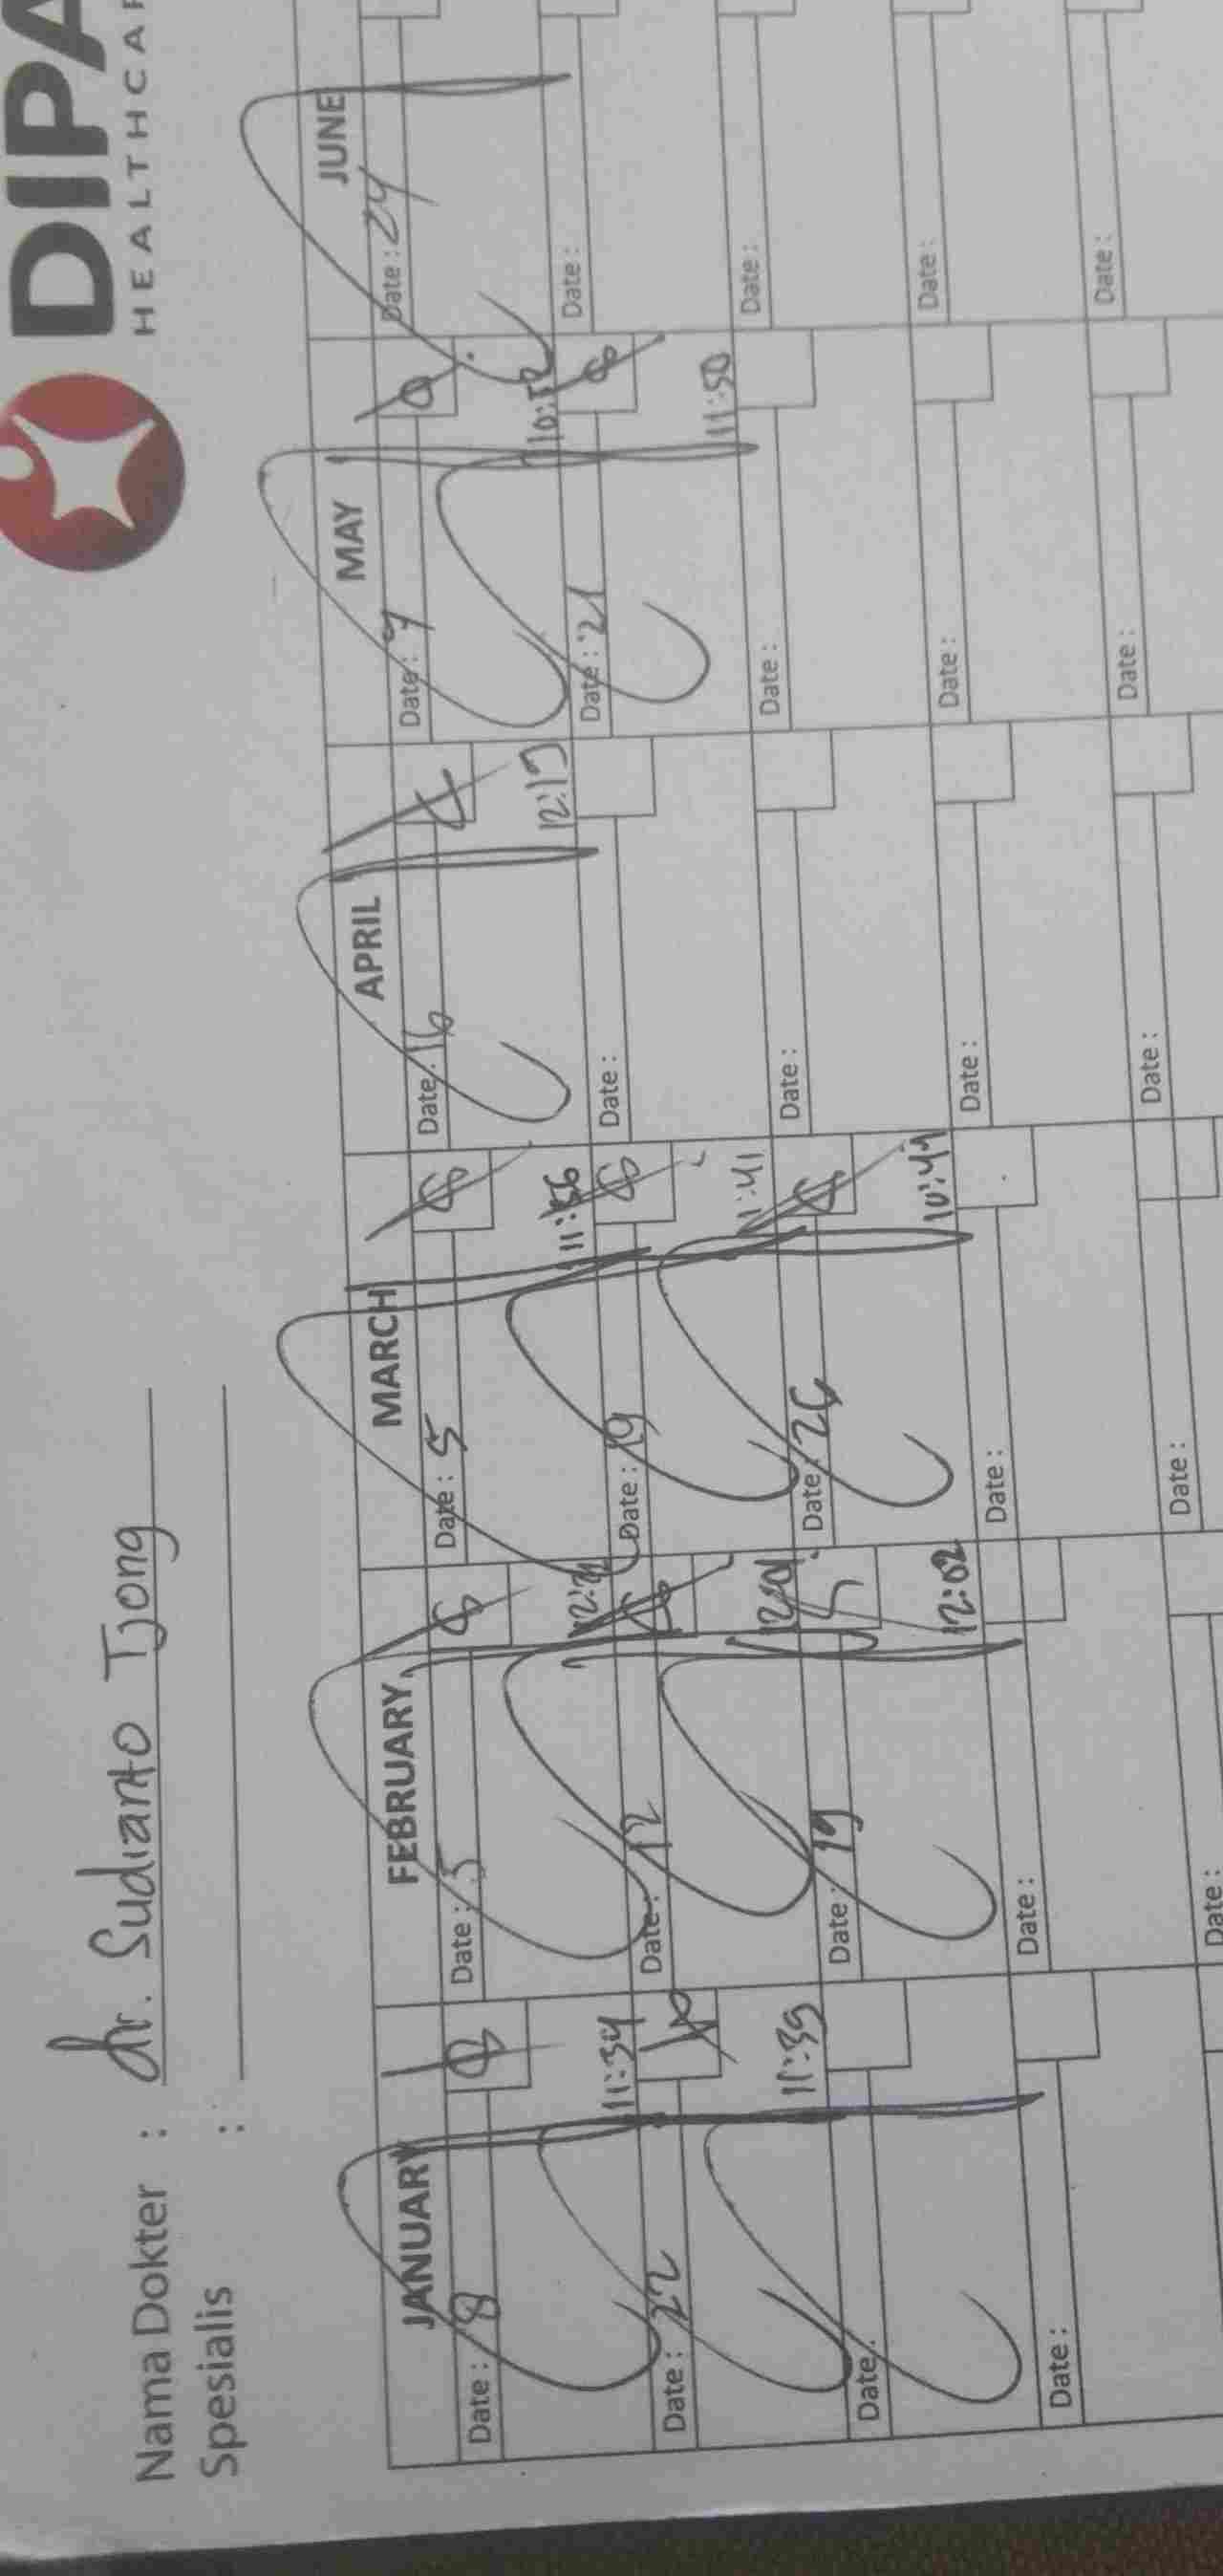 DIPA
HEALTHCAR
Nama Dokter : dr. Sudianto Tjong
Spesialis :
JANUARY FEBRUARY MARCH APRIL MAY JUNE
Date : 8 Date : 5 Date : 5 Date : 16 Date : 7 Date : 24
11:34 11:56 12:17 10:52
Date : 22 Date : 12 Date : 19 Date : Date : 21 Date :
11:39 12:01 1:41 11:50
Date : Date : 19 Date : 26 Date : Date : Date :
12:02 10:44
Date : Date : Date : Date : Date : Date :
Date : Date : Date : Date : Date :